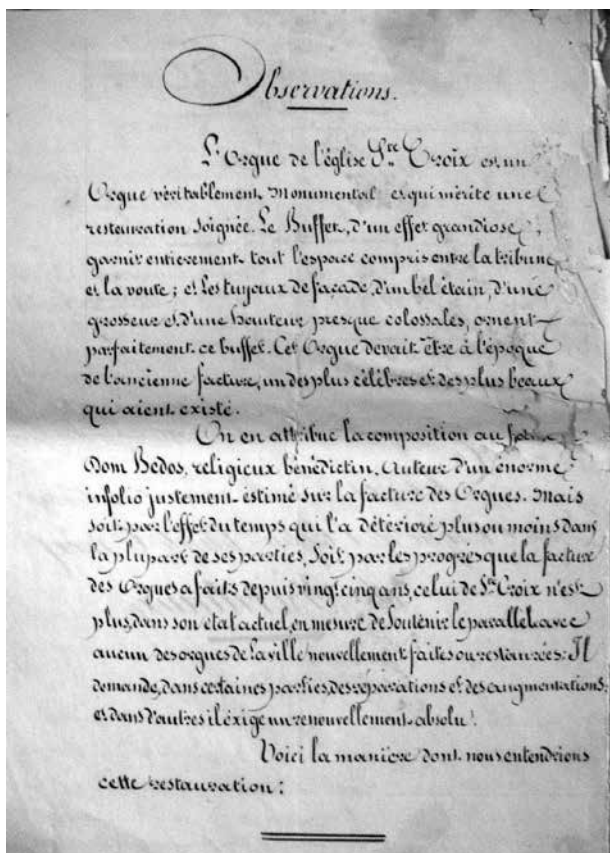 Observations.
L'Orgue de l'église Ste Croix est un
Orgue véritablement monumental et qui mérite une
restauration soignée. Le Buffet, d'un effet grandiose,
garnit entierement tout l'espace compris entre la tribune
et la voute ; et les tuyaux de façade, d'un bel étain, d'une
grosseur et d'une hauteur presque colossales, ornent
parfaitement ce buffet. Cet Orgue devait être à l'époque
de l'ancienne facture, un des plus célèbres et des plus beaux
qui aient existé.
On en attribue la composition au
Dom Bedos, religieux bénédictin. Auteur d'un énorme
infolio justement estimé sur la facture des Orgues. Mais
soit par l'effet du temps qui l'a détérioré plus ou moins dans
la plupart de ses parties, soit par les progrès que la facture
des Orgues a faits depuis vingt cinq ans, celui de Ste Croix n'est
plus, dans son état actuel, en mesure de soutenir le parallèle avec
aucun des orgues de la ville nouvellement faites ou restaurées. Il
demande, dans certaines parties, des reparations et des augmentations,
et dans d'autres il éxige un renouvellement absolu.
Voici la manière dont nous entendrions
cette restauration :